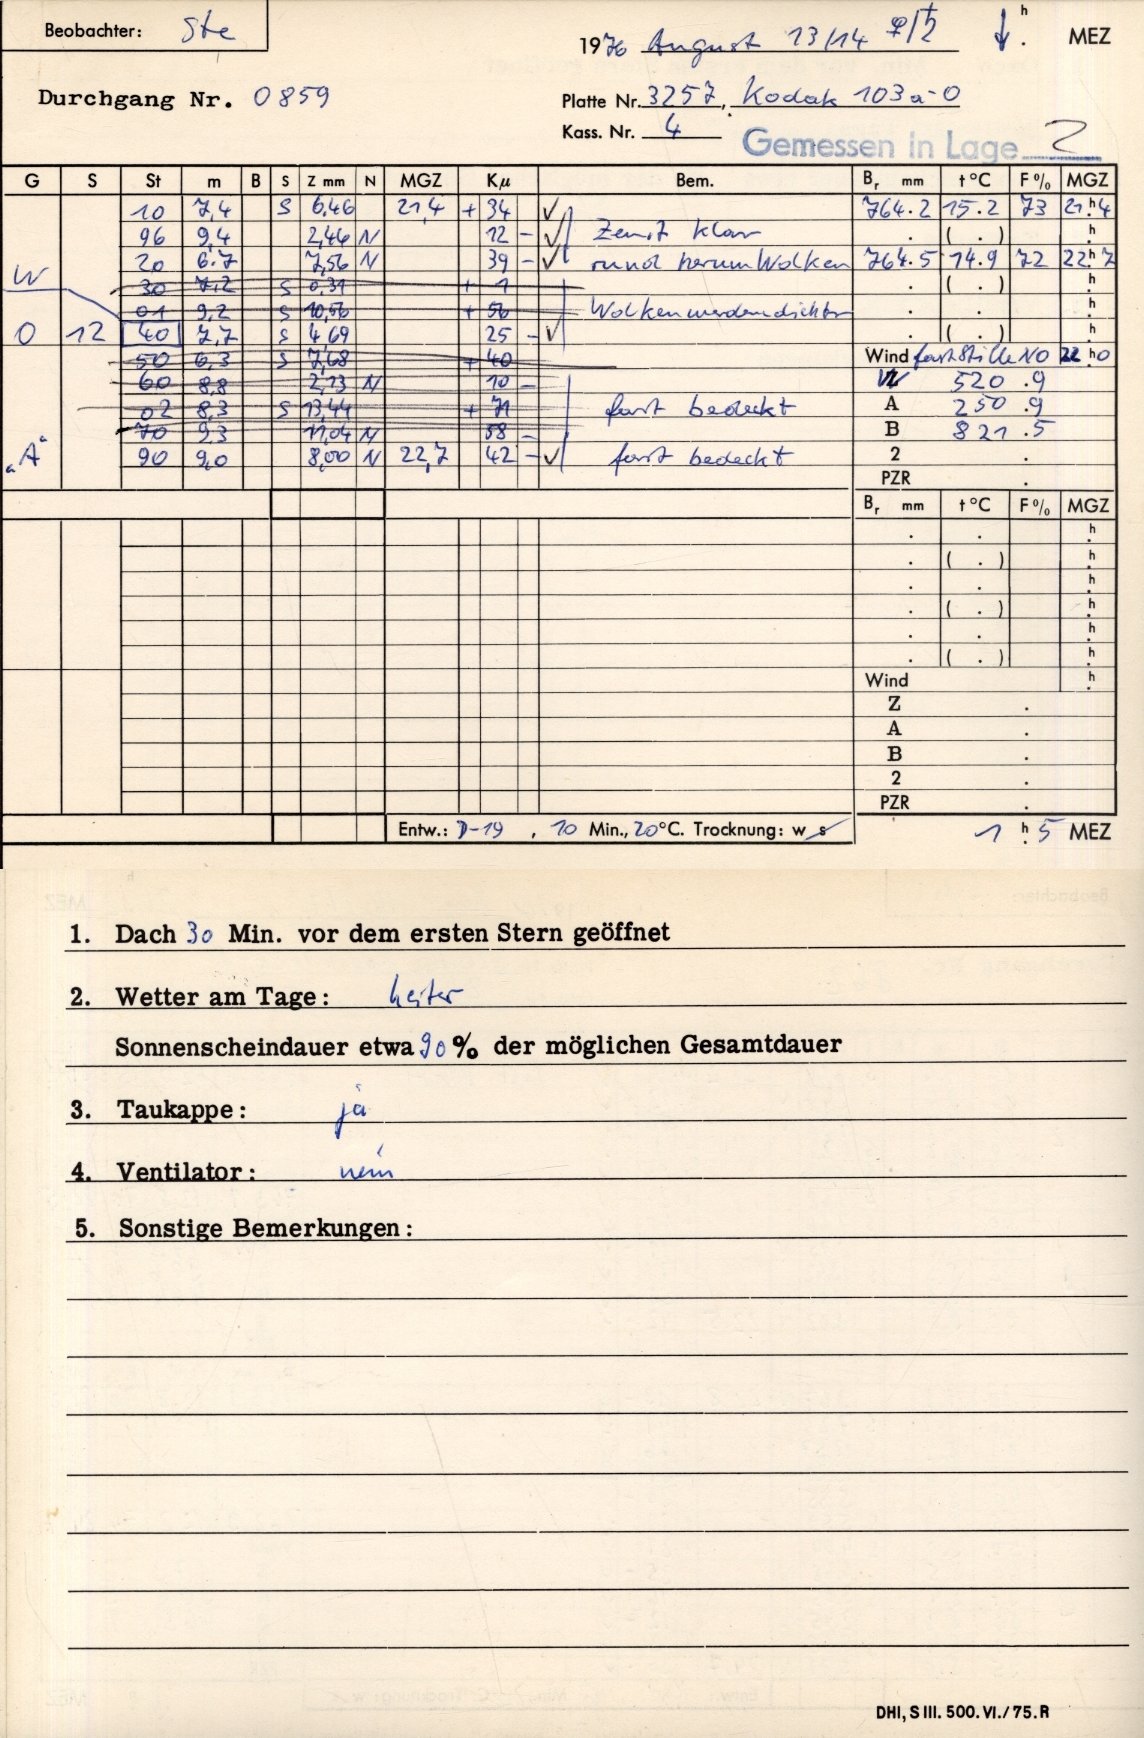 Beobachter: Ste
1976 August 13/14 ♀/♄ ↓ h . MEZ
Durchgang Nr. 0859
Platte Nr. 3257, Kodak 103a-O
Kass. Nr. 4
Gemessen in Lage 2
G S St m B S Z mm N MGZ Kμ Bem. Br mm t °C F % MGZ
10 7,4 S 6,46 21,4 + 34 ✓ 764.2 15.2 73 21h.4
96 9,4 2,46 N 12 - ✓ Zenit klar . ( . ) h.
W 20 6.7 7,56 N 39 - ✓ rund herum Wolken 764.5 14.9 72 22h.7
30 7,2 S 0,31 + 1 . ( . ) h.
01 9,2 S 10,56 + 56 Wolken werden dichter . . h.
O 12 40 7,7 S 4,69 25 - ✓ . ( . ) h.
50 6,3 S 7,68 + 40 Wind fast Stille NO 22 h.0
60 8,8 2,13 N 10 - 520 .9
02 8,3 S 13,44 + 71 fast bedeckt A 250 .9
70 9,3 11,04 N 58 - B 821 .5
"A" 90 9,0 8,00 N 22,7 42 - ✓ fast bedeckt 2 .
PZR .
Br mm t °C F % MGZ
. . h.
. ( . ) h.
. . h.
. ( . ) h.
. . h.
. ( . ) h.
Wind h.
Z .
A .
B .
2 .
PZR .
Entw.: D-19 , 10 Min., 20°C. Trocknung: w s 1 h. 5 MEZ
1. Dach 30 Min. vor dem ersten Stern geöffnet
2. Wetter am Tage: heiter
Sonnenscheindauer etwa 90 % der möglichen Gesamtdauer
3. Taukappe: ja
4. Ventilator: nein
5. Sonstige Bemerkungen:
DHI, S III. 500. VI./75. R